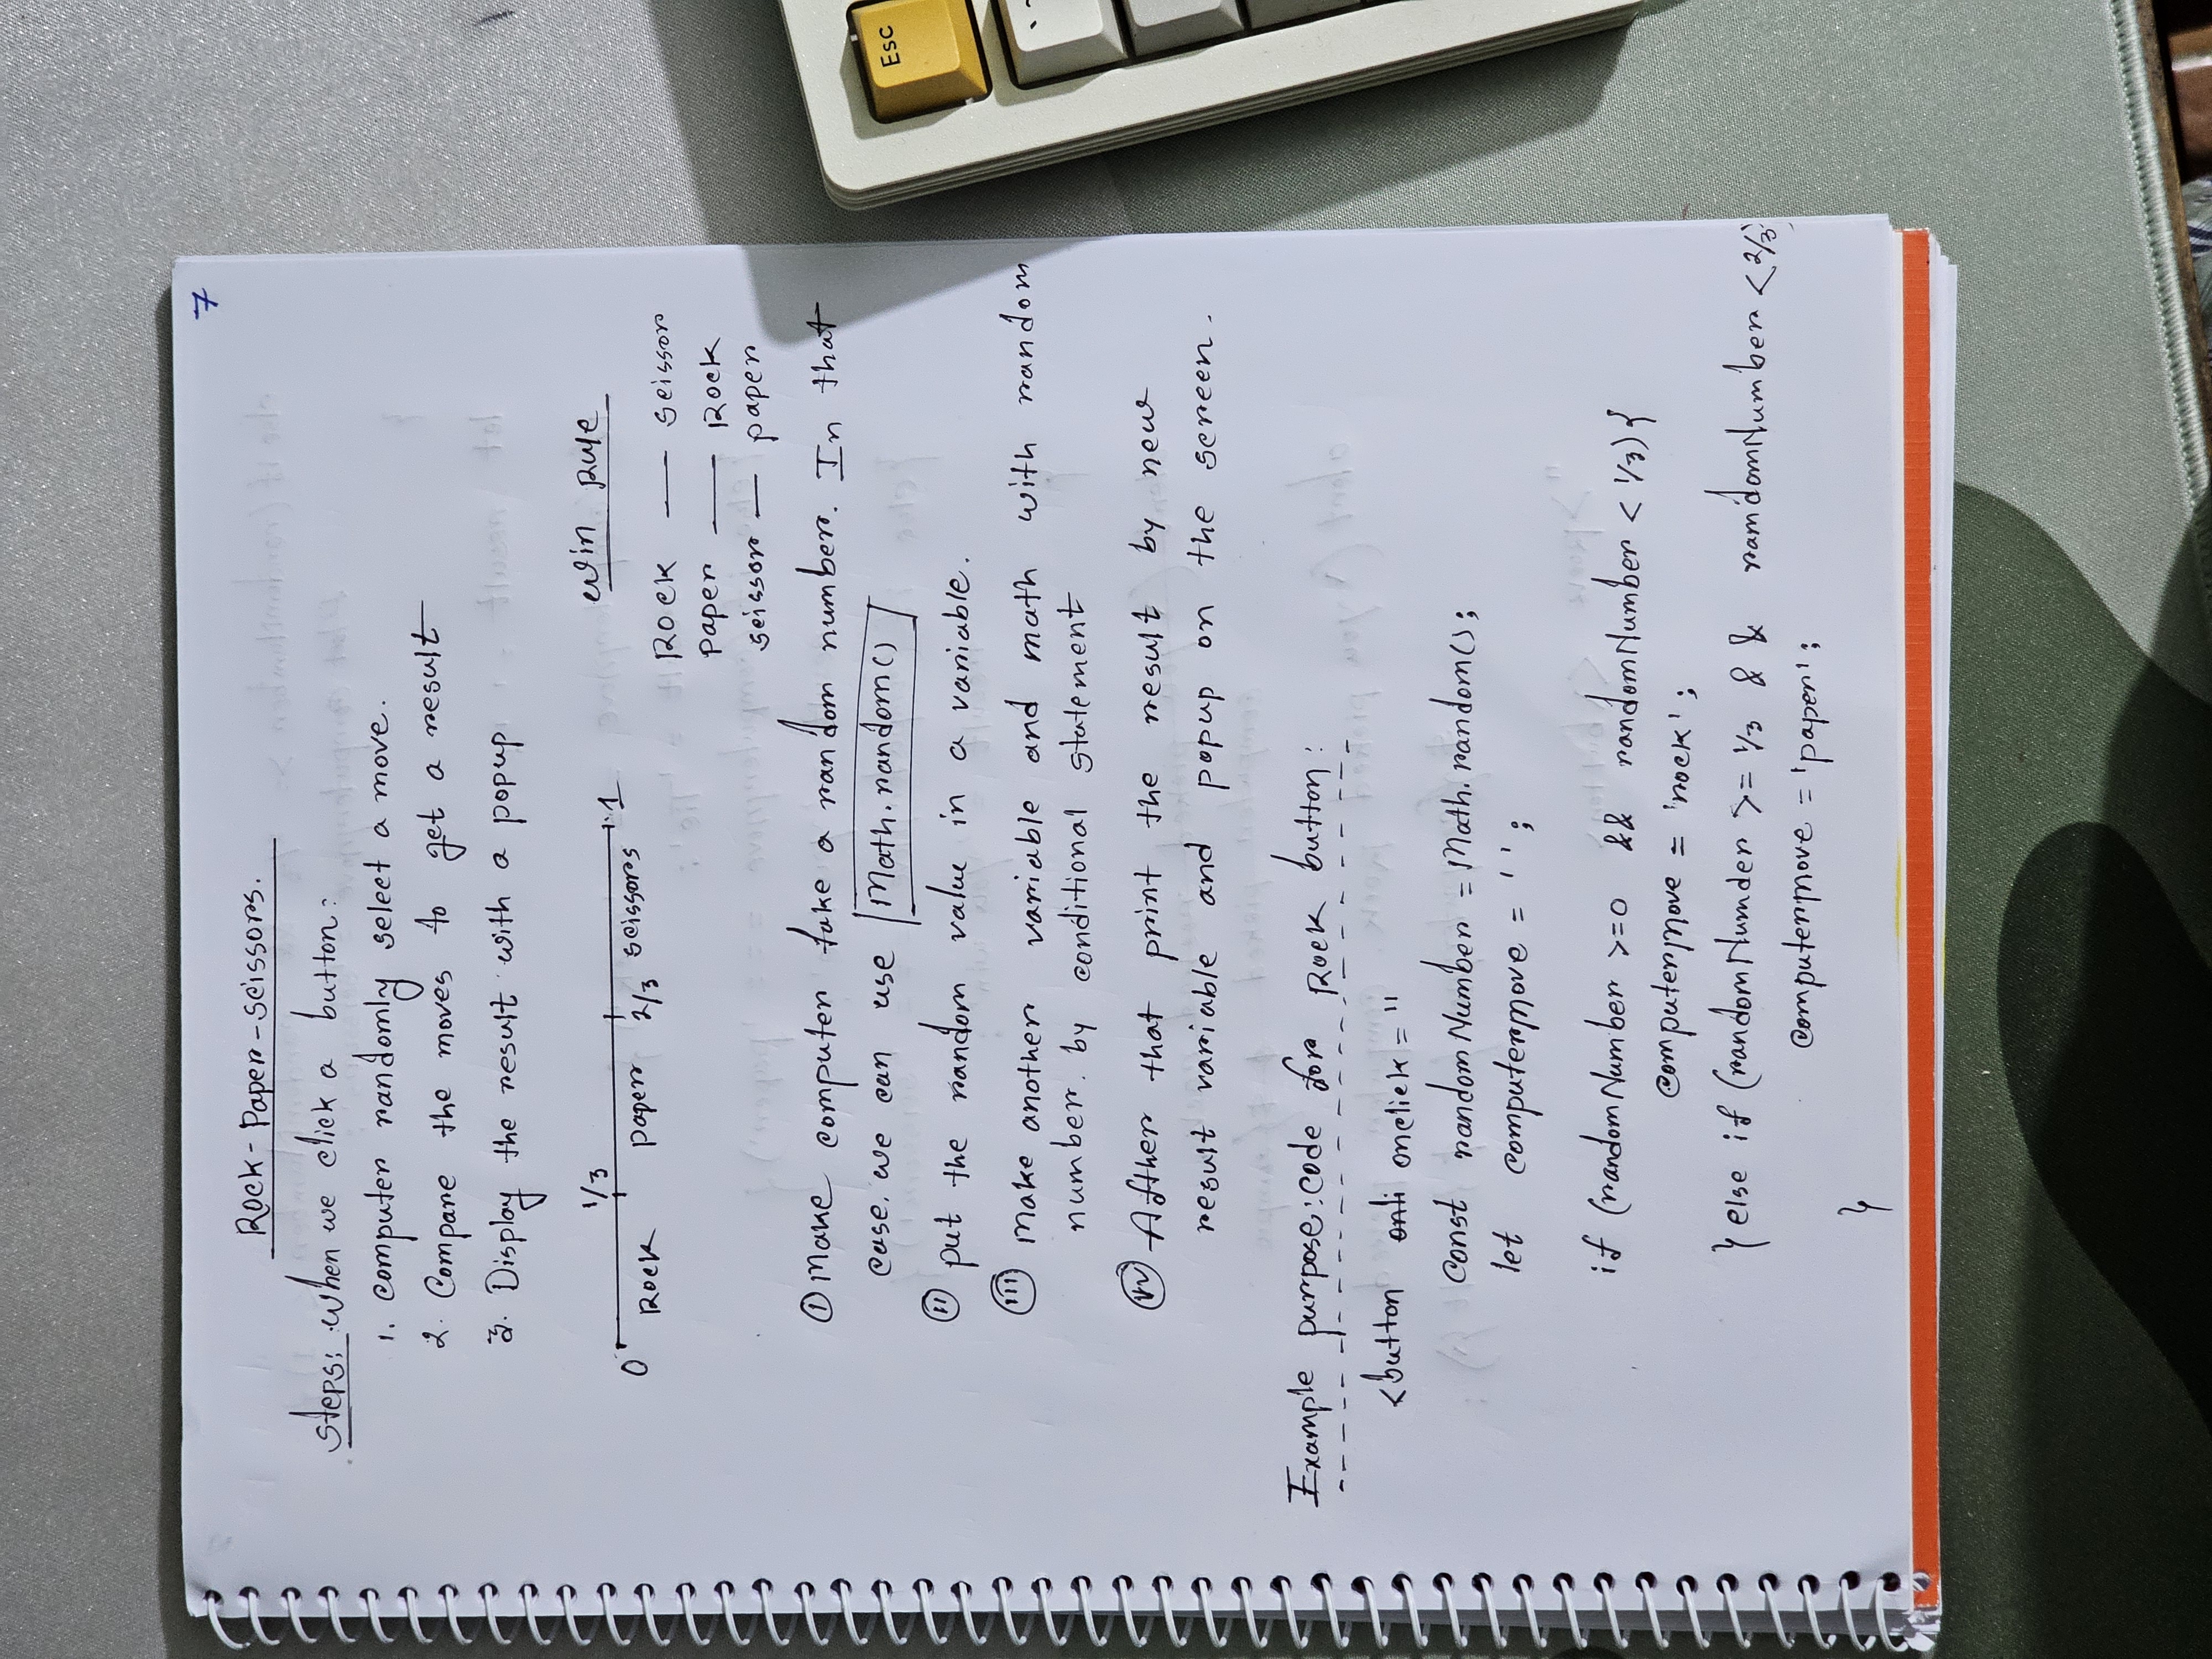 7
Rock-Paper-scissors.
Steps: When we click a button:
1. computer randomly select a move.
2. Compare the moves to get a result
3. Display the result with a popup
0 1/3 2/3 1
Rock paper scissors
Win Rule
Rock — scissor
paper — Rock
scissor — paper
(i) Make computer take a random number. In that
case, we can use Math.random()
(ii) put the random value in a variable.
(iii) Make another variable and math with random
number. by conditional statement
(iv) Afther that print the result by new
result variable and popup on the screen.
Example purpose: code for Rock button:
<button onli onclick = "
Const randomNumber = Math.random();
let computermove = '';
if (randomNumber >=0 && randomNumber < 1/3) {
computermove = 'rock';
} else if (randomNumder >= 1/3 && ramdomNumber < 2/3)
computermove = 'paper';
}
Esc